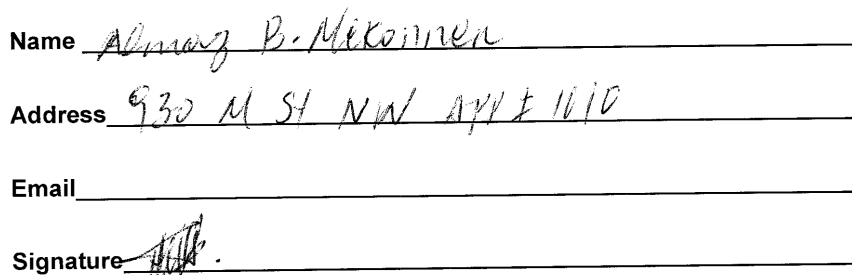 Name Almaz B. Mekonnen
Address 930 M St NW APT # 1010
Email
Signature